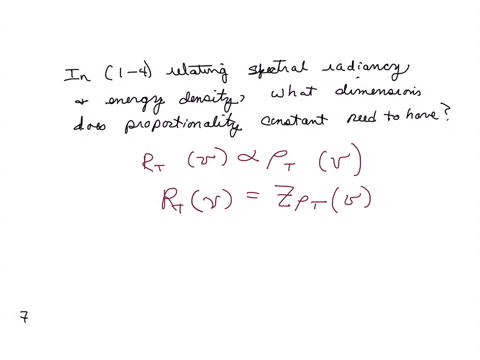 In (1-4) relating spectral radiancy
& energy density, what dimensions
does proportionality constant need to have?
R_T (ν) ∝ ρ_T (ν)
R_T (ν) = Z ρ_T (ν)
7